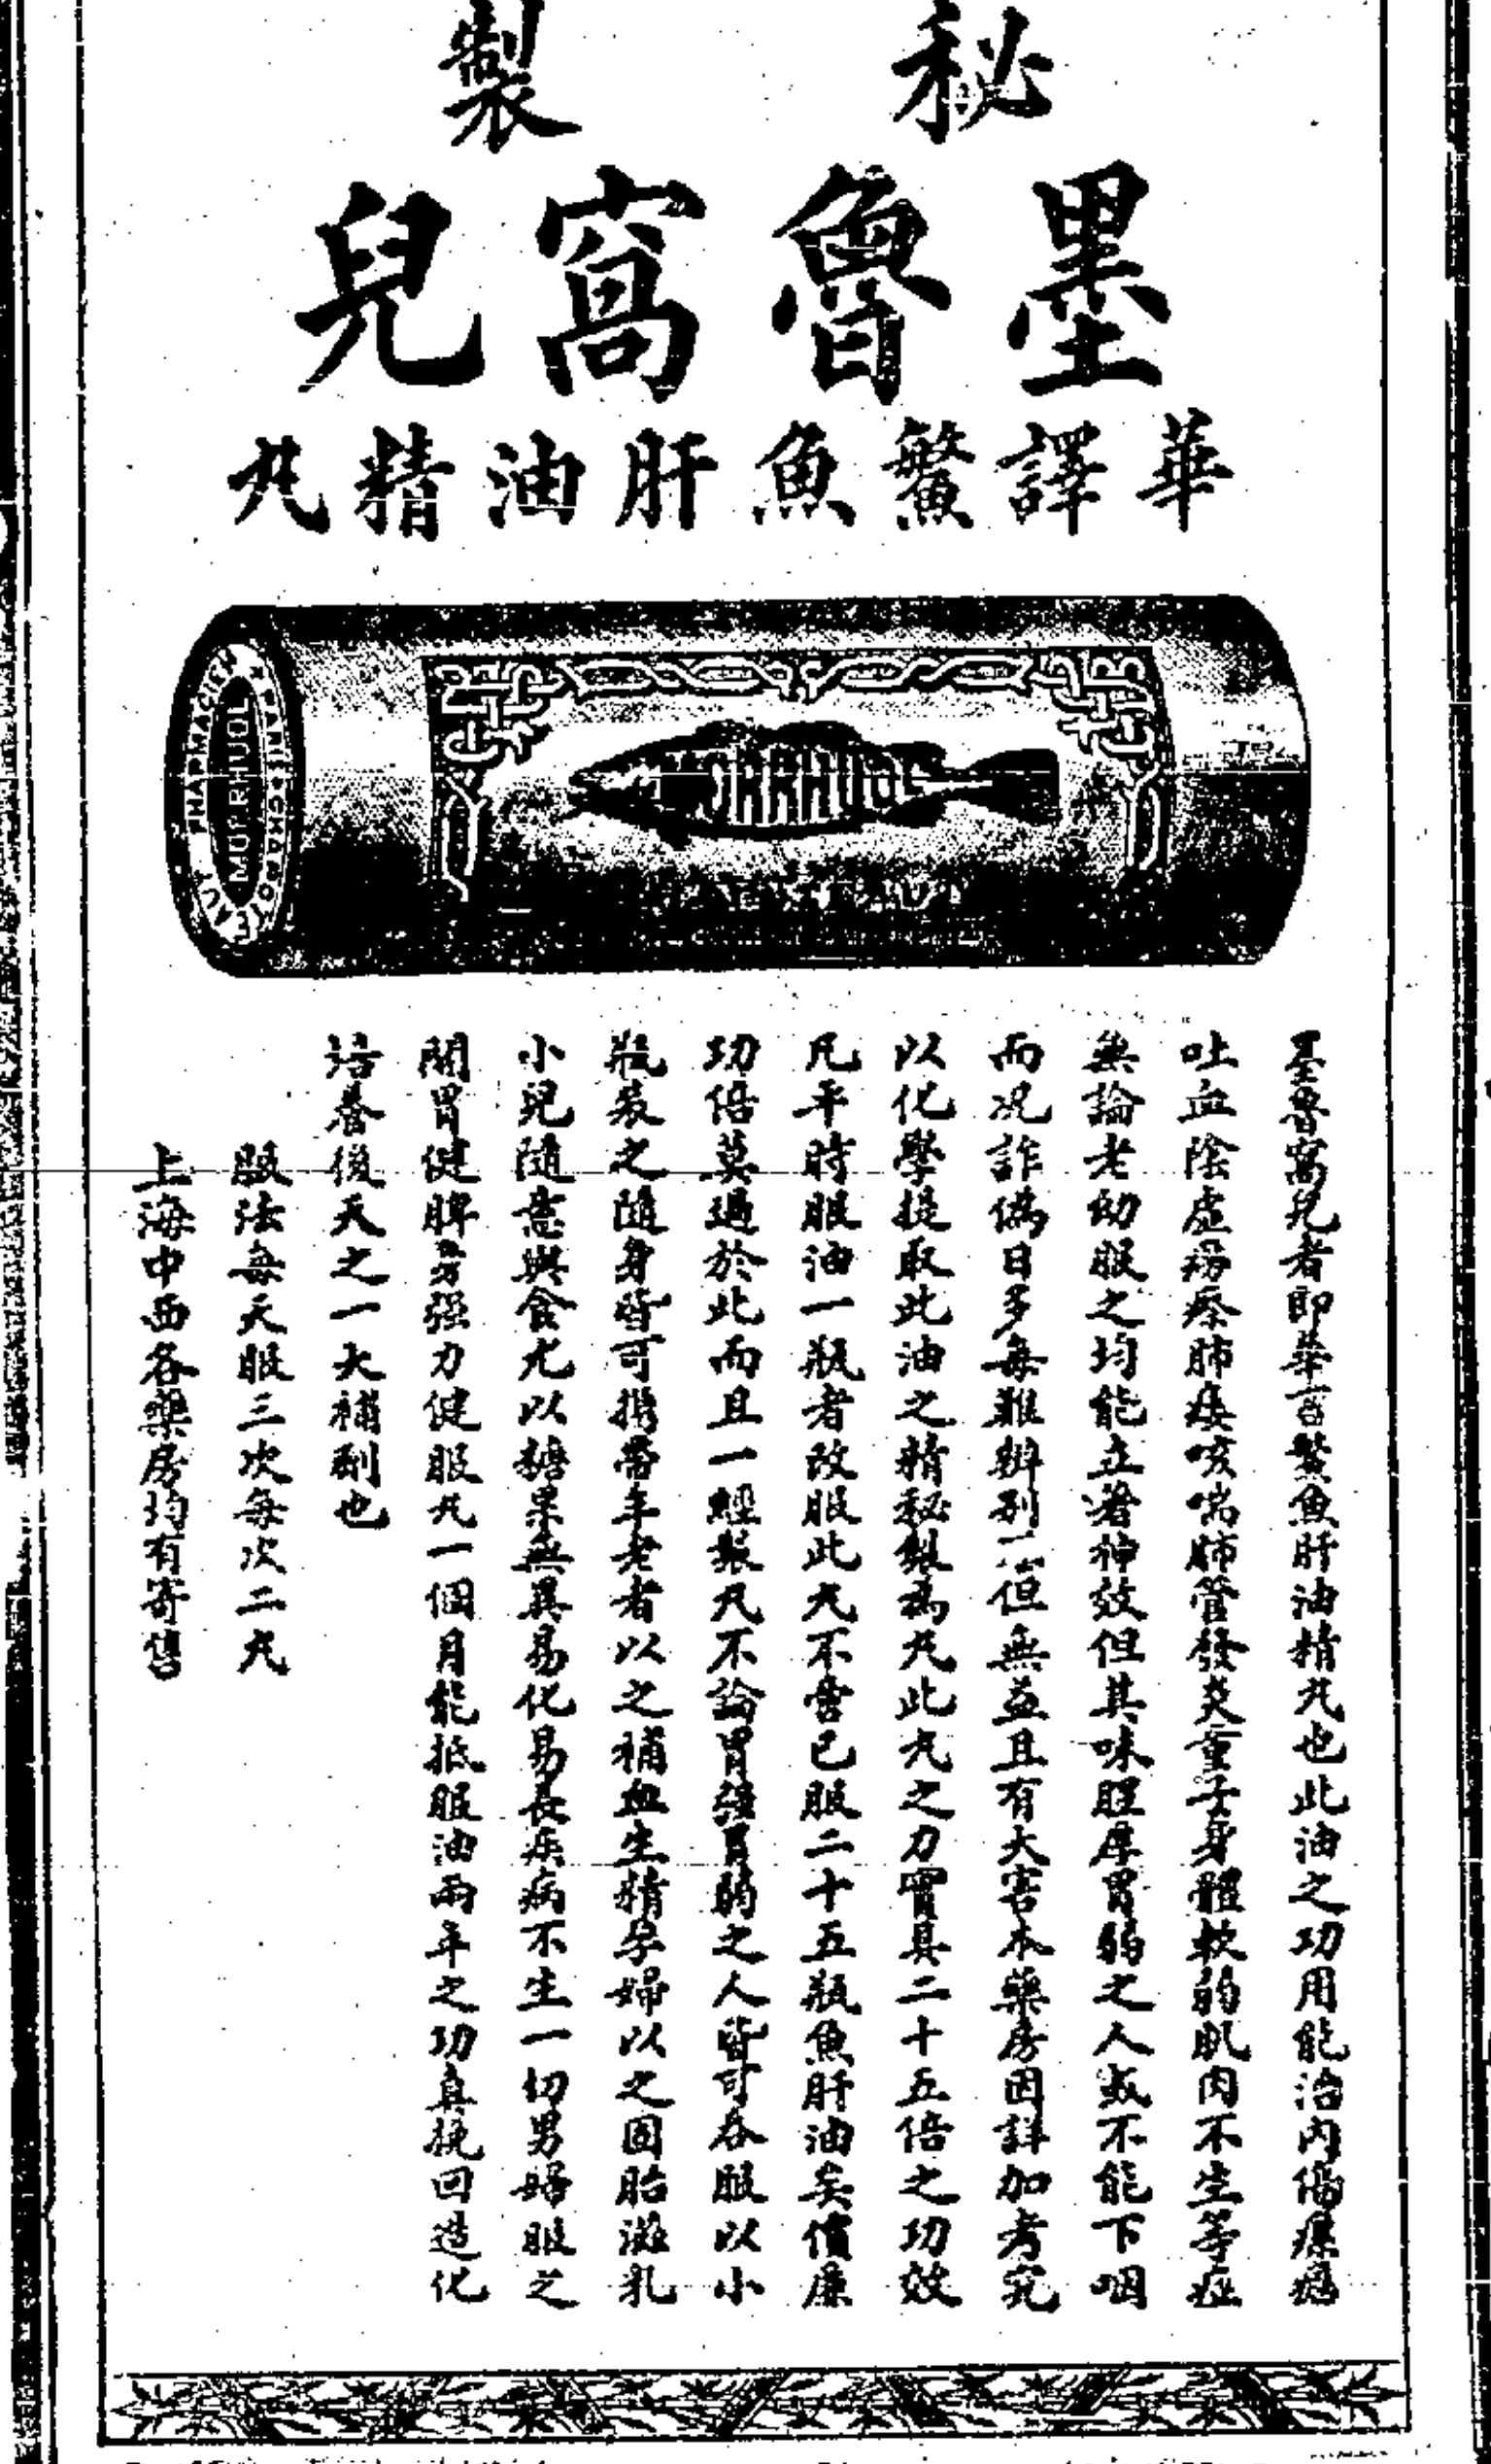 秘製
墨魯窩兒
華譯鰵魚肝油精丸
PHARMACIEN
PARIS
CHAPOTEAUT
MORRHUOL
MORRHUOL
墨魯窩兒者即華言鰵魚肝油精丸也此油之功用能治內傷瘰癧
吐血陰虛癆瘵肺痿咳喘肺管發炎童子身體軟弱肌肉不生等症
無論老幼服之均能立著神效但其味腥厚胃弱之人或不能下咽
而况詐偽日多每難辨別不但無益且有大害本藥房因詳加考究
以化學提取此油之精秘製為丸此丸之力實具二十五倍之功效
凡平時服油一瓶者改服此丸不啻已服二十五瓶魚肝油矣價廉
功倍莫過於此而且一經製丸不論胃強胃弱之人皆可吞服以小
瓶裝之隨身皆可攜帶年老者以之補血生精孕婦以之固胎滋乳
小兒隨意與食尤以糖果無異易化易長疾病不生一切男婦服之
開胃健脾身强力健服丸一個月能抵服油兩年之功真挽回造化
培養後天之一大補劑也
服法每天服三次每次二丸
上海中西各藥房均有寄售